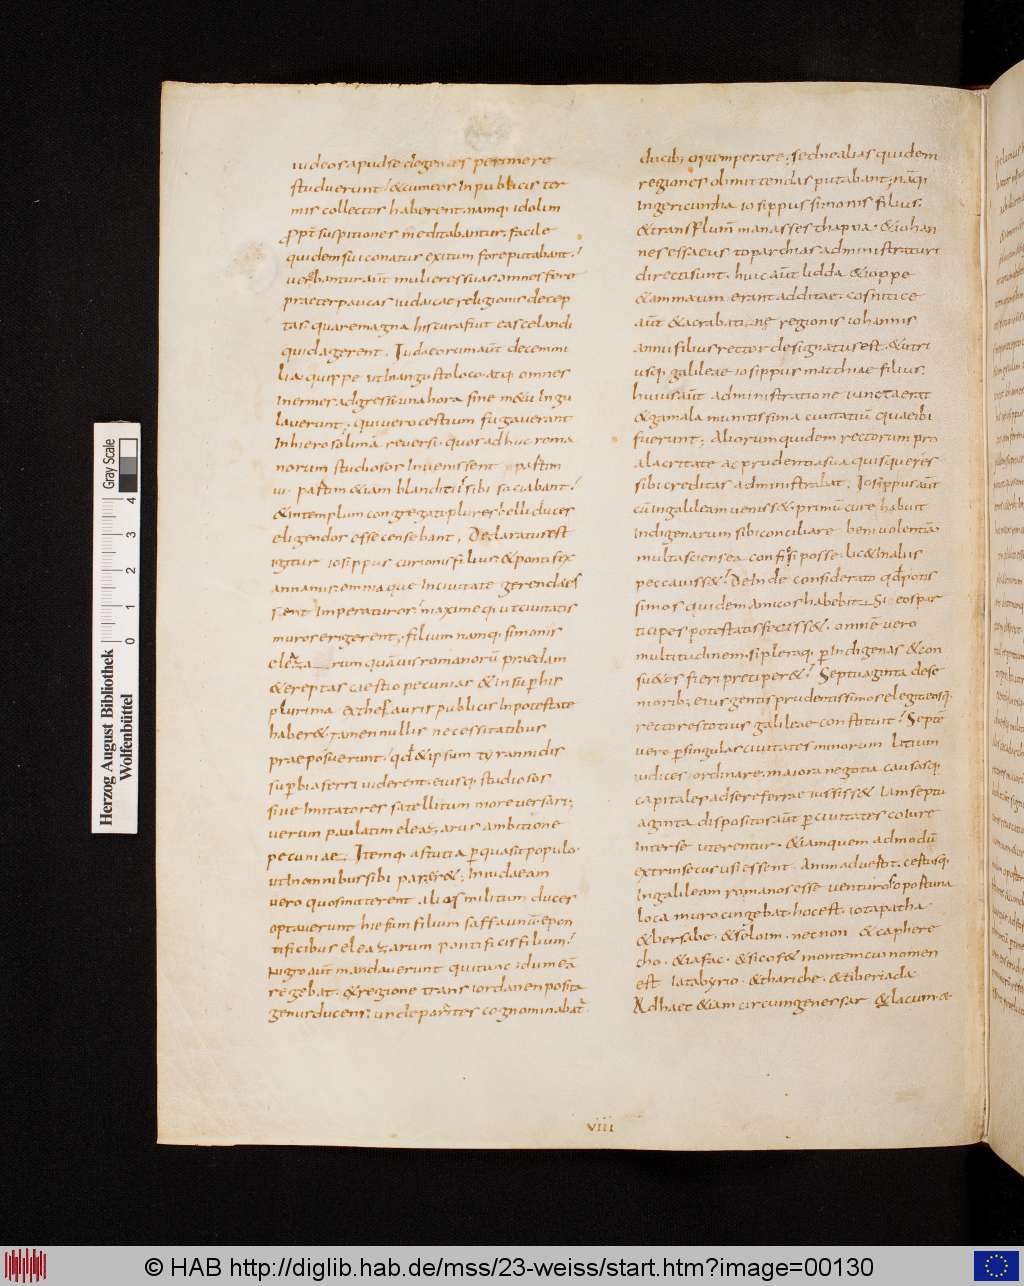 iudeos apud se degentes perimere
studuerunt; & cum eos in publicis ter
mis collectos haberent, namq; idolim
suspitiones meditabantur; facile
quidem sui conatus exitum fore putabant;
mulieres suas omnes fere
praeter paucas iudaicae religionis decep
tas; quare magna his cura fiut eas celandi
quid agerent. Iudaeorum aut decem mi
lia quippe ut in angusto loco atq; omnes
inermes adgressi una hora sine metu iugu
laverunt; qui vero cestium fugaverant
in hierosolima reversi, quos adhuc roma
norum studiosos invenissent partim
vi partim &iam blanditiis sibi sociabant;
& in templum congregati plures belli duces
eligendos esse censebant, Declaratus est
igitur iosippus curionis filius & pontifex
annanus omnia quae in civitate gerenda es
sent imperatores; maxime q; ut civitatis
muros erigerent; filium namq; simonis
eleazarum quavis romanoru praedam
& ereptas caestio pecunias & insuper his
plurima ex thesauris publicis in potestate
haber& tamen nullis necessitatibus
praeposuerunt; qd & ipsum tyrannidis
superbia ferri viderent, eiusq; studiosos
sive imitatores satellitum more versari;
verum paulatim eleazarus ambitione
pecuniae Itemq; astutia per quasit populo
ut in omnibus sibi parer&; In iudaeam
vero quos mitterent alios militum duces
optaverunt hiesum filium saffa unu & pon
tificibus eleazarum pontificis filium;
Nigro aut mandaverunt qui tunc idumea
regebat, & regione trans iordanen posita
genus ducens; unde paraites cognominabat
ducibus optemperare; sed ne alias quidem
regiones obmittendas putabant; naq;
in gericuntha iosippus simonis filius;
& trans Flum manasses thapna & iohan
nes essaeus toparchias administraturi
directi sunt, huic aut lidda & ioppe
& ammaum erant additae, cofnitice
aut & acrabatinę regionis iohannis
annu filius rector designatus est, & utri
usq; galileae iosippus matthiae filius;
huius aut administratione iuncta erat
& gamala munitissima civitatiu quae ibi
fuerunt; Aliorum quidem rectorum pro
alacritate ac prudentia sua quisque res
sibi creditas administrabat; Iosippus aut
cu in galileam veniss& primu cure habuit
indigenarum sibi conciliare benivolentia
multas ciens ea confisi posse lic& in aliis
peccaviss&; Deinde considerato qd potis
simos quidem amicos habebit Si eos par
ticipes potestatis feciss&, omne vero
multitudinem si pleraq; per indigenas & con
su&os fieri preciper&; Septuaginta de se
nioribus eius gentis prudentissimos elegit eosq;
rectores totius galileae constituit; Septe
vero per singulas civitates minorum litium
iudices ordinare, maiora negotia causasq;
capitales ad se referre iussiss& Iam septu
aginta dispositos aut per civitates co iure
inter se uterentur, & iam quem admodu
extrinsecus usi essent, Animadvertit, certusq;
in galileam romanos esse venturos oportuna
loca muro cingebat hoc est, iotapatha
& bersabe, & seloim, nec non & caphere
cho, & iafac, & sicof & montem cui nomen
est Iatabyrio, & tharichę, & tiberiada
Ad haec &iam circum genersar & lacum æ
viii
Herzog August Bibliothek
Wolfenbüttel
0 1 2 3 4
Gray Scale
© HAB http://diglib.hab.de/mss/23-weiss/start.htm?image=00130